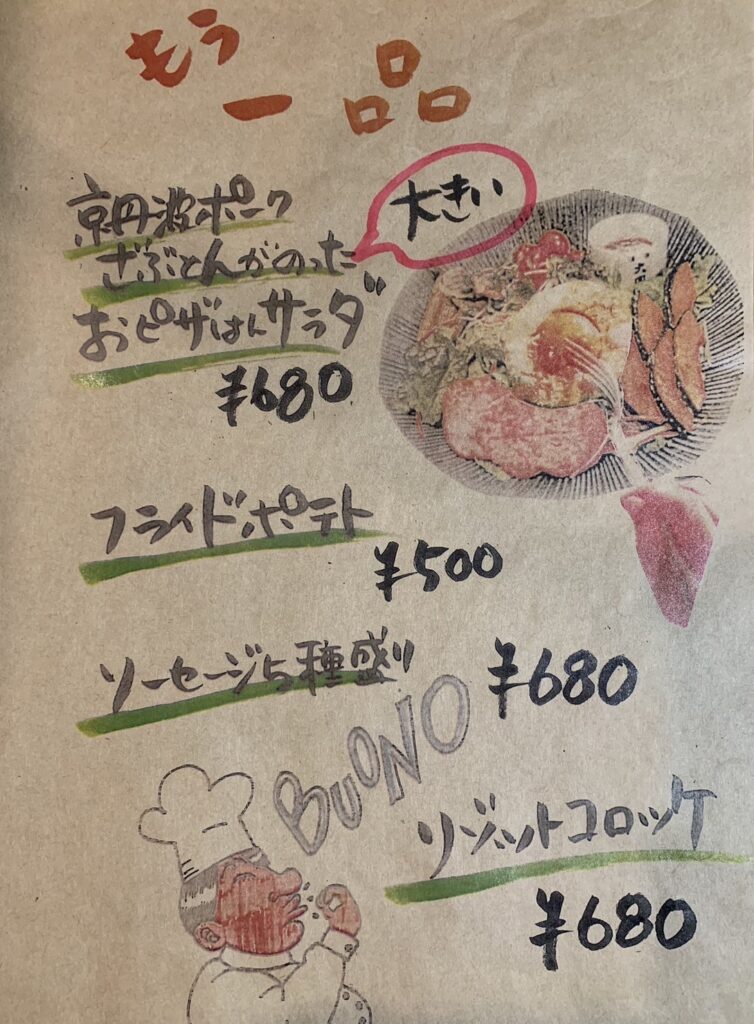 もう
一品
京丹波ポーク
ざぶとんがのった
おピザはんサラダ
大きい
¥680
フライドポテト
¥500
ソーセージ5種盛り
¥680
BUONO
リゾットコロッケ
¥680